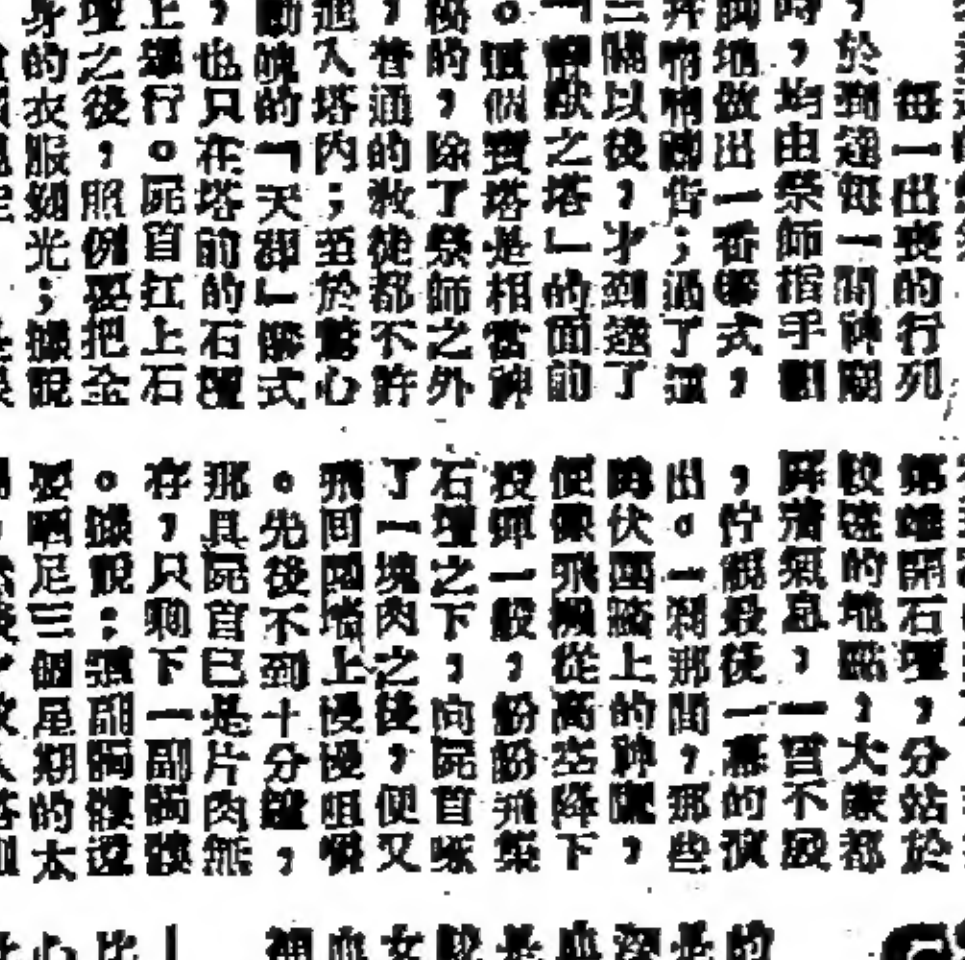 每一出喪的行列
，於到達每一間神廟
時，均由祭師指手劃
脚地做出一番儀式，
并喃喃禱告；過了這
三關以後，才到達了
「靜默之塔」的面前
。這個寶塔是相當神
秘的，除了祭師之外
，普通的教徒都不許
進入塔內；至於驚心
動魄的「天」儀式
，也只在塔前的石壇
上舉行。屍首扛上石
壇之後，照例要把金
身的衣服剝光；據說
離開石壇，分站於
較遠的地點，大家都
屏清氣息，一言不發
，佇觀最後一幕的演
出。一刹那間，那些
伏圍牆上的神鷹，
便像飛機從高空降下
投彈一般，紛紛飛集
石壇之下，向屍首啄
了一塊肉之後，便又
飛回圍墻上慢慢咀嚼
。先後不到十分鐘，
那具屍首已是片肉無
存，只剩下一副髑髏
。據說：這副髑髏還
要晒足三個星期的太